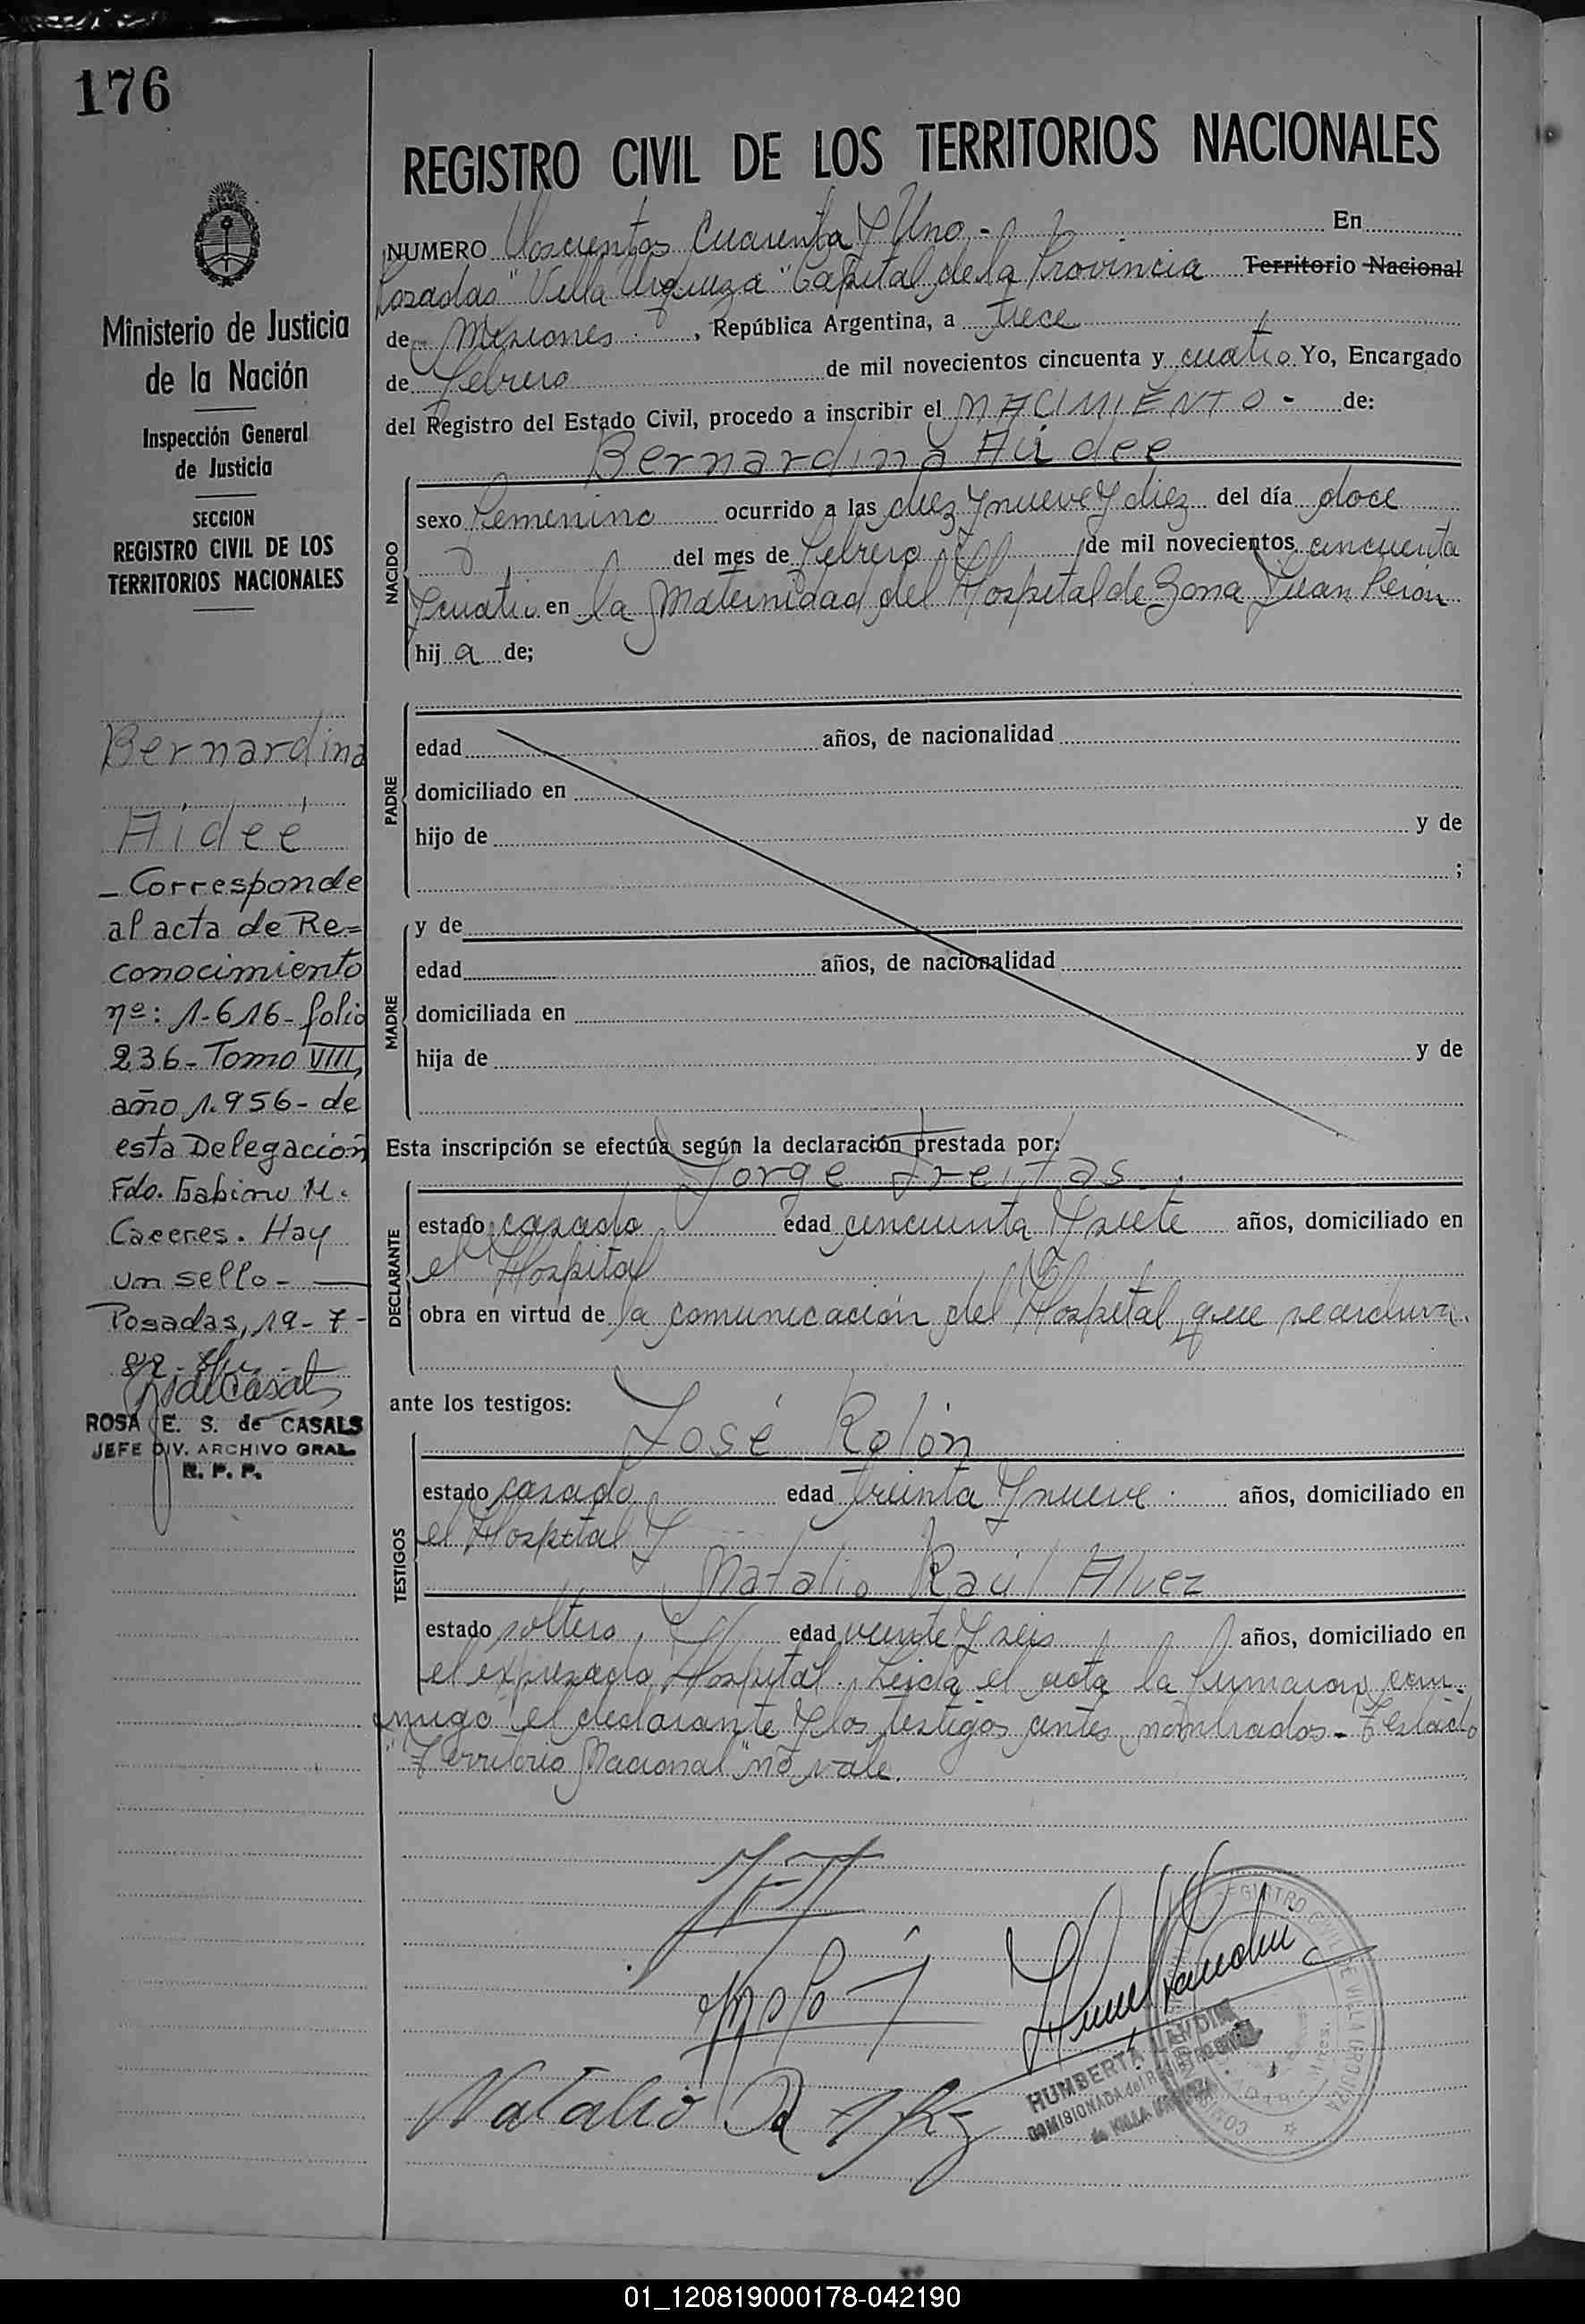 176
Ministerio de Justicia
de la Nación
Inspección General
de Justicia
SECCION
REGISTRO CIVIL DE LOS
TERRITORIOS NACIONALES
Bernardina
Aideé
- Corresponde
al acta de Re=
conocimiento
nº: 1.616- folio
236- Tomo VIII,
año 1.956- de
esta Delegación
Fdo. Gabino M.
Caceres. Hay
un sello-
Posadas, 19-7-
82-
ROSA E. S. de CASALS
JEFE DIV. ARCHIVO GRAL.
R. P. P.
REGISTRO CIVIL DE LOS TERRITORIOS NACIONALES
NUMERO Doscientos Cuarenta Y Uno - En
Posadas "Villa Urquiza" Capital de la Provincia Territorio Nacional
de Misiones, República Argentina, a trece
de Febrero de mil novecientos cincuenta y cuatro Yo, Encargado
del Registro del Estado Civil, procedo a inscribir el NACIMIENTO - de:
Bernardina Aidee
NACIDO
sexo Femenino ocurrido a las diez y nueve y diez del día doce
del mes de Febrero de mil novecientos cincuenta
y cuatro en la Maternidad del Hospital de Zona Juan Perón
hij a de;
PADRE
edad años, de nacionalidad
domiciliado en
hijo de y de
;
MADRE
y de
edad años, de nacionalidad
domiciliada en
hija de y de
Esta inscripción se efectúa según la declaración prestada por:
Jorge Freitas
DECLARANTE
estado casado edad cincuenta y siete años, domiciliado en
el Hospital
obra en virtud de la comunicación del Hospital, que se archiva.
ante los testigos:
José Rolón
TESTIGOS
estado casado edad treinta y nueve años, domiciliado en
el Hospital y
Natalio Raúl Alvez
estado soltero, edad veinte y seis años, domiciliado en
el expresado Hospital. Leida el acta la firmaron con-
migo el declarante y los testigos antes nombrados. Testado
"Territorio Nacional" no vale.
Natalio R
HUMBERTA LANDINI
COMISIONADA del
de VILLA URQUIZA
REGISTRO CIVIL DE VILLA URQUIZA
01_120819000178-042190